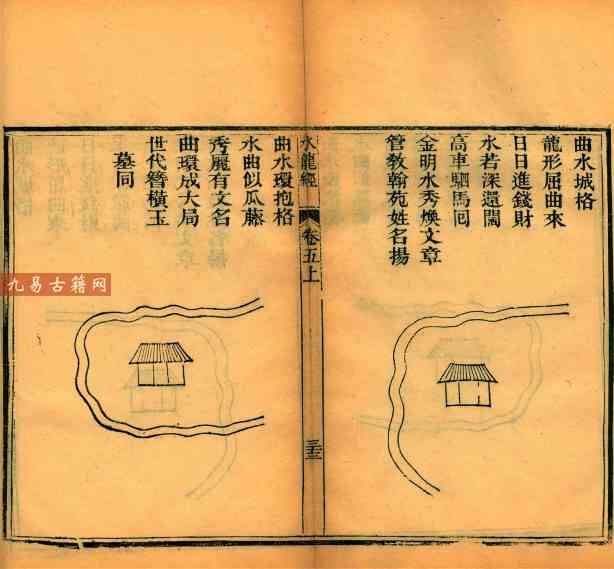 曲水城格
龍形屈曲來
日日進錢財
水若深還闊
高車駟馬囘
金明水秀煥文章
管敎翰苑姓名揚
水龍經
卷五上
三十三
曲水環抱格
水曲似瓜藤
秀麗有文名
曲環成大局
世代簪橫玉
墓同
九易古籍网